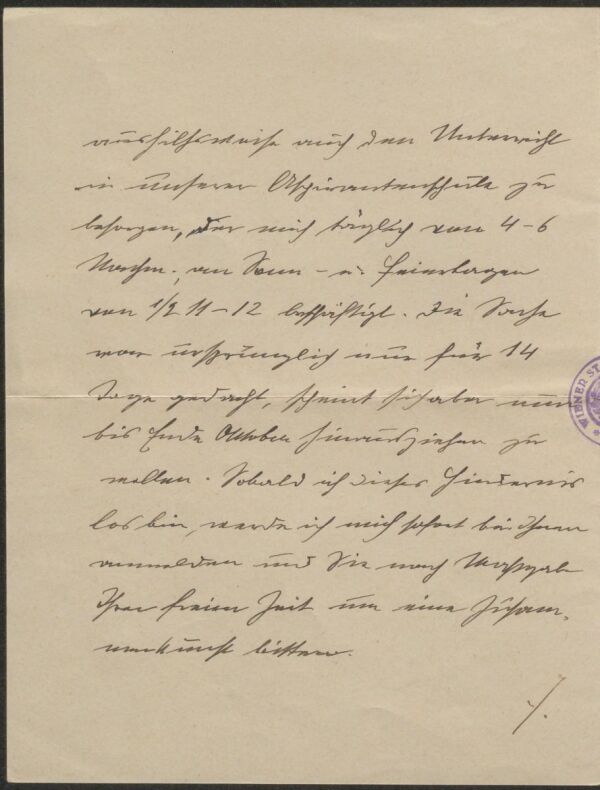 aushilfsweise auch den Unterricht
in unserer Aspirantenschule zu
besorgen, der mich täglich von 4–6
Nachm., an Sonn- u. Feiertagen
von 1/2 11–12 beschäftigt. Die Sache
war ursprünglich nur für 14
Tage gedacht, scheint sich aber nun
bis Ende Oktober hinausziehen zu
wollen. Sobald ich dieses Hindernis
los bin, werde ich mich sofort bei Ihnen
anmelden und Sie nach Maßgabe
Ihrer freien Zeit um eine Zusam-
menkunft bitten.
./.
WIENER ST